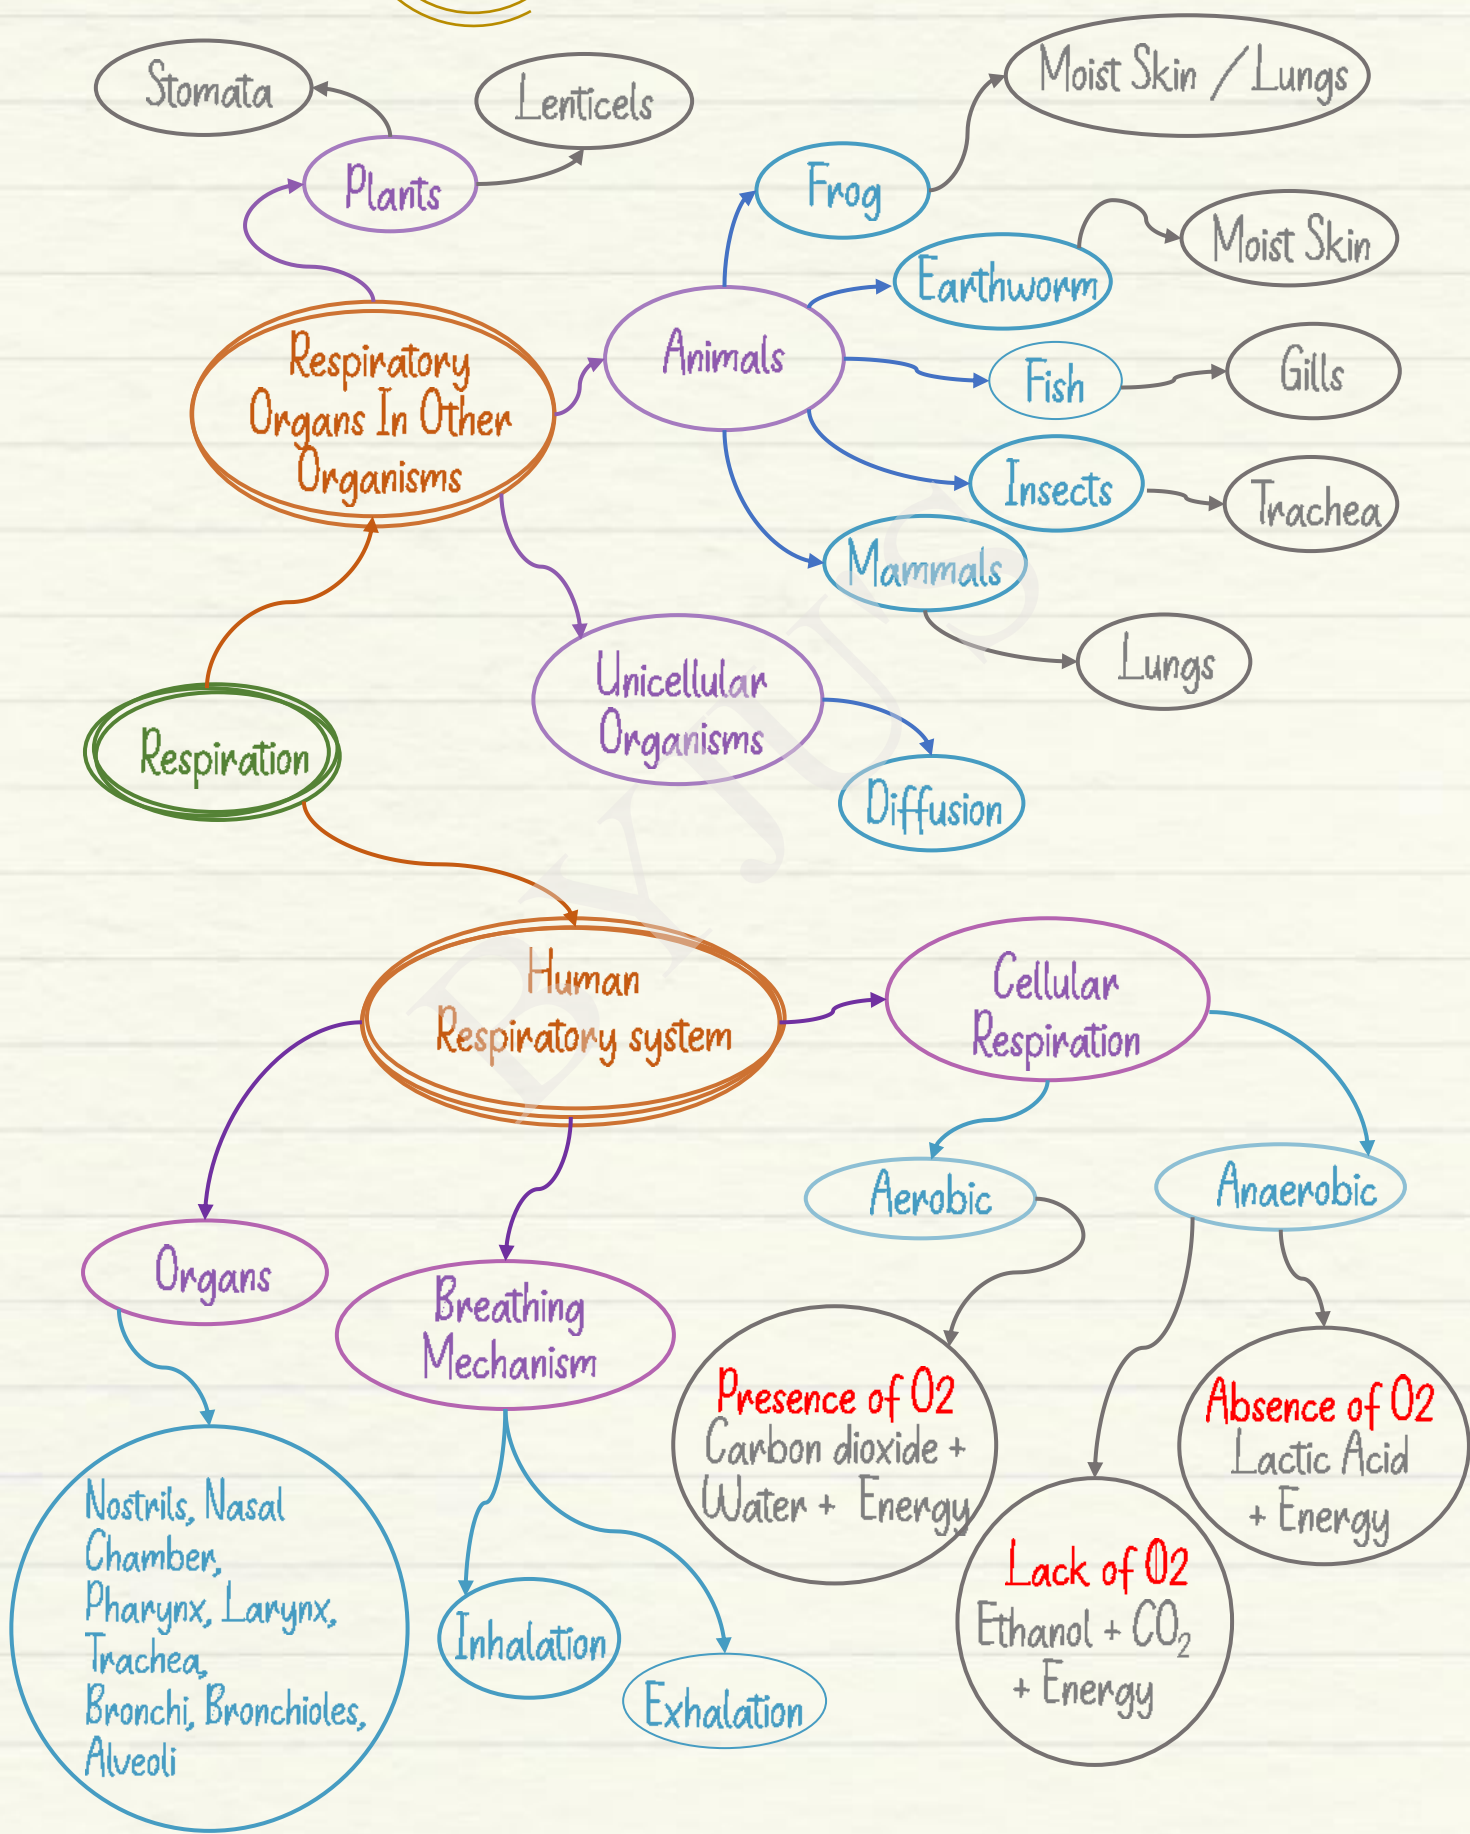 Stomata
Lenticels
Moist Skin / Lungs
Plants
Frog
Moist Skin
Earthworm
Respiratory
Organs In Other
Organisms
Animals
Fish
Gills
Insects
Trachea
Mammals
Lungs
Unicellular
Organisms
Respiration
Diffusion
Human
Respiratory system
Cellular
Respiration
Aerobic
Anaerobic
Organs
Breathing
Mechanism
Presence of O2
Carbon dioxide +
Water + Energy
Absence of O2
Lactic Acid
+ Energy
Lack of O2
Ethanol + CO₂
+ Energy
Nostrils, Nasal
Chamber,
Pharynx, Larynx,
Trachea,
Bronchi, Bronchioles,
Alveoli
Inhalation
Exhalation
BYJU'S